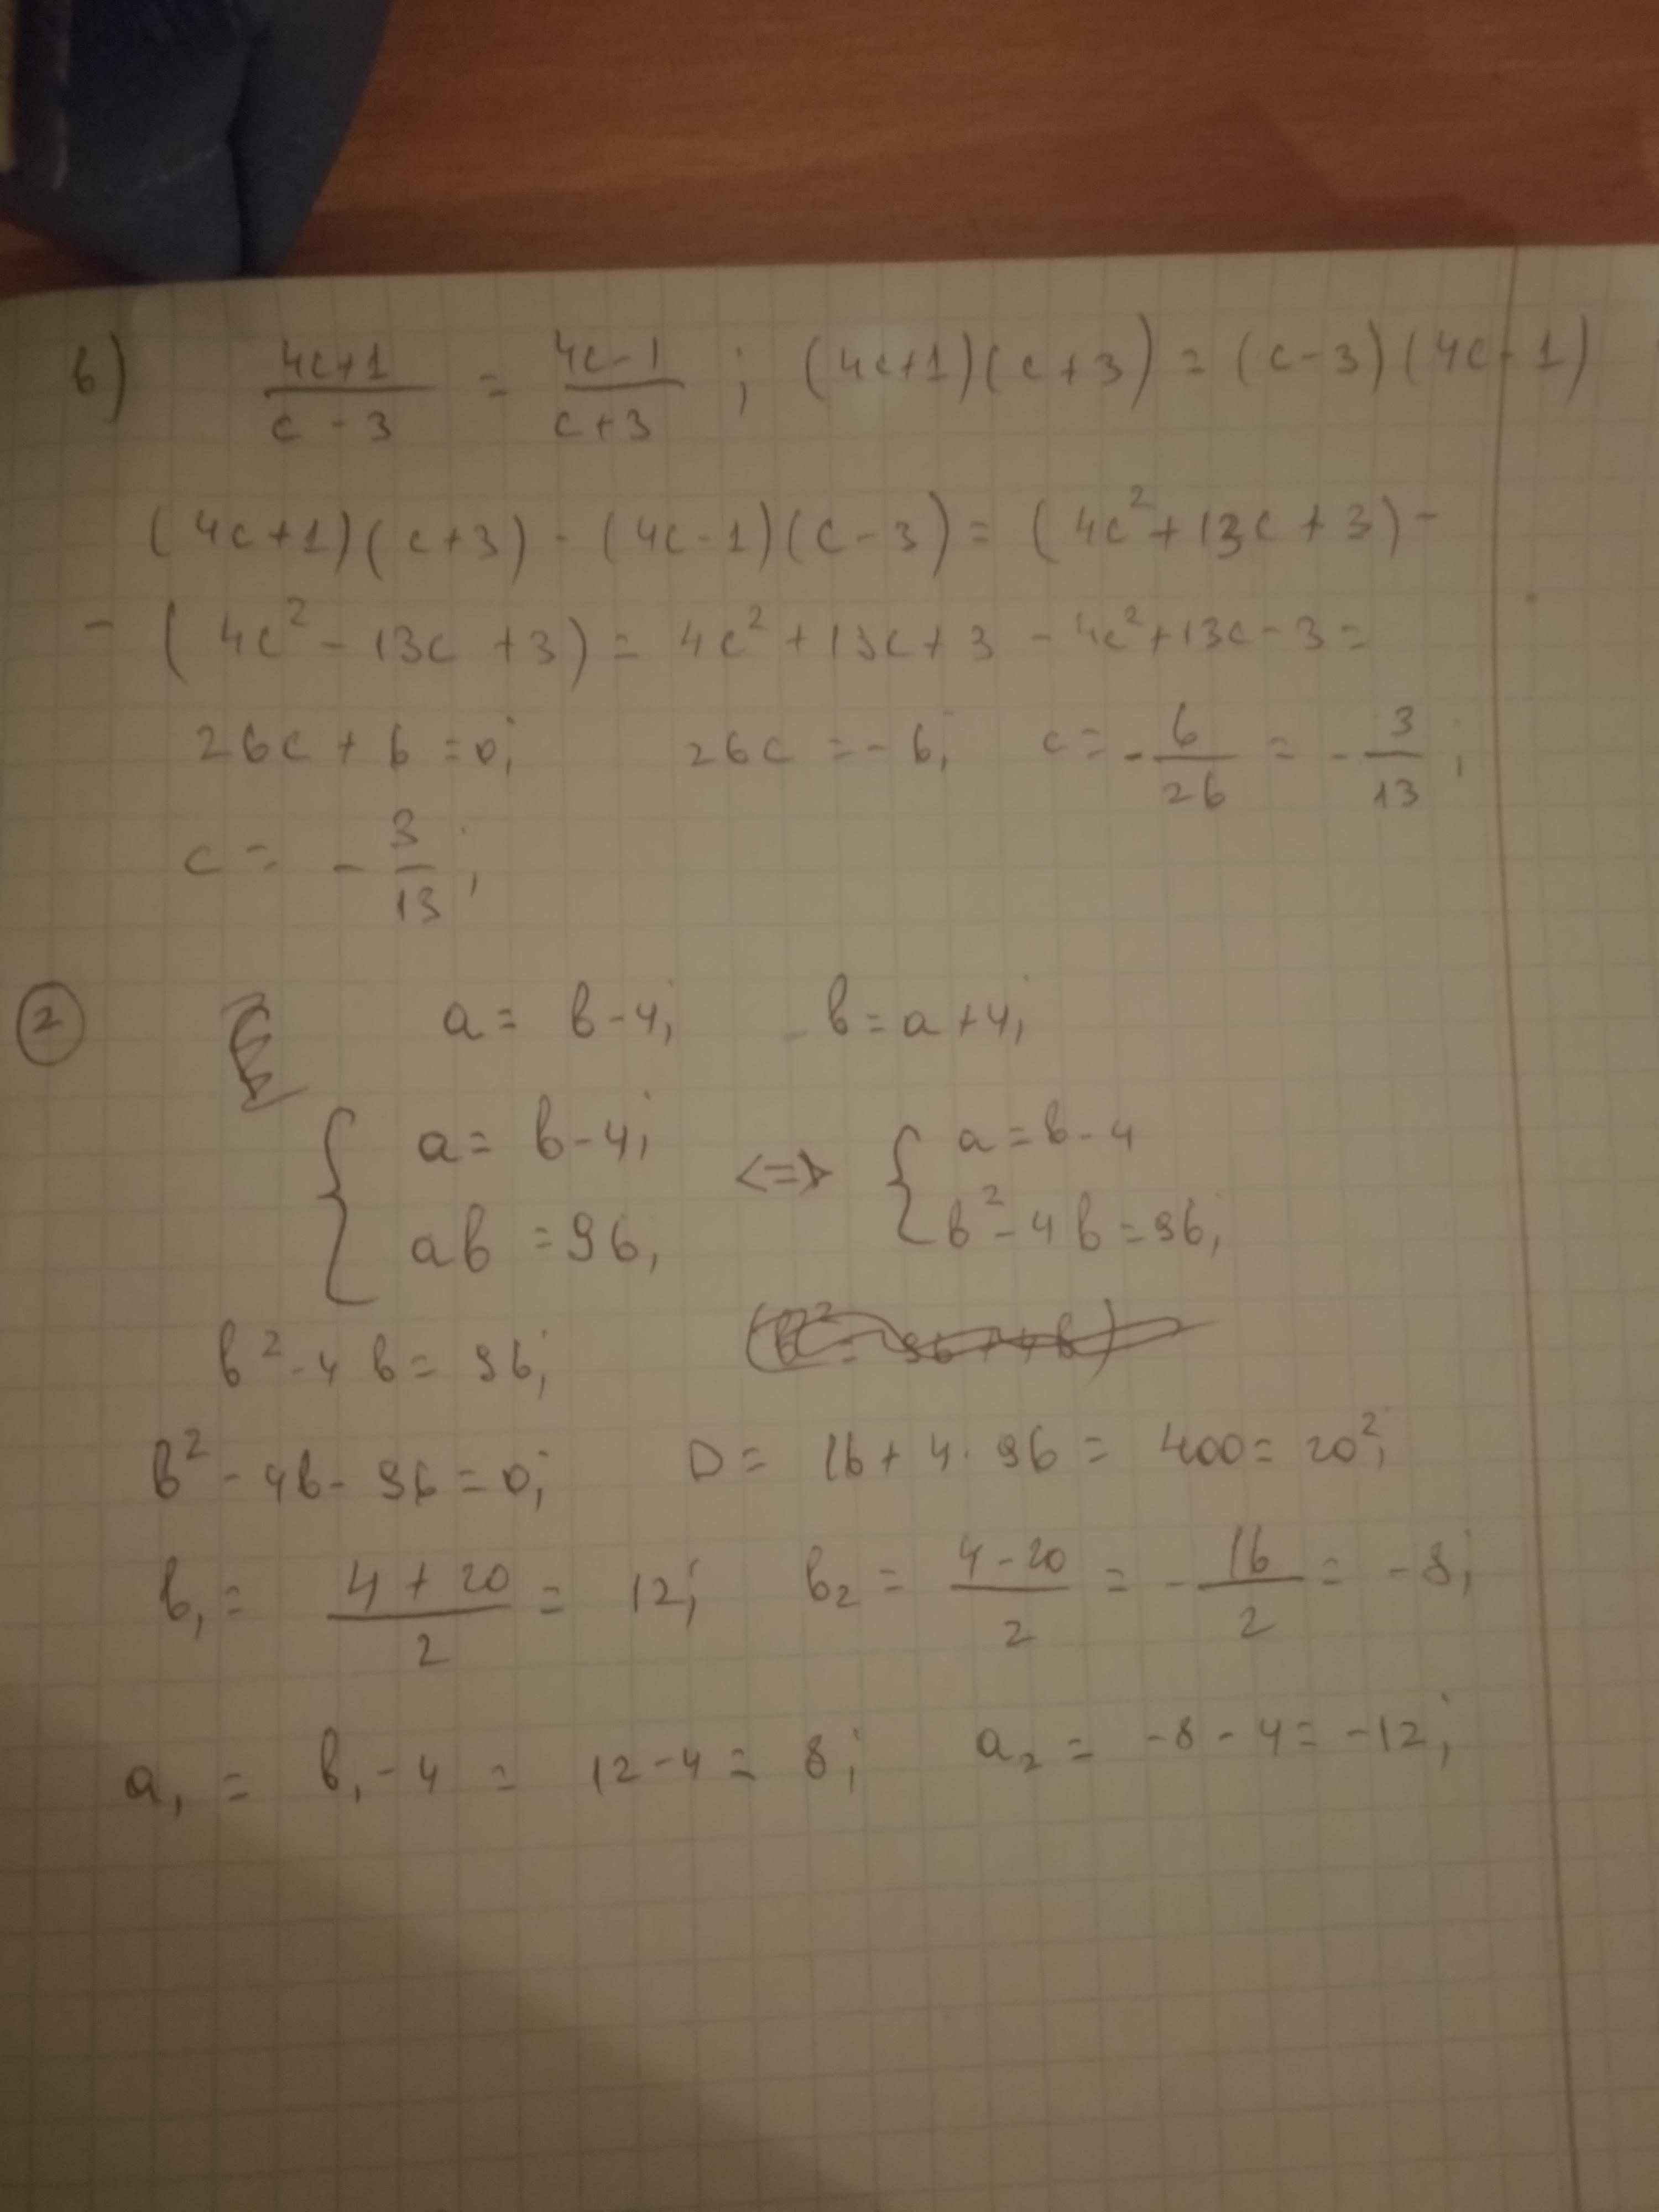 в) (4c+1)/(c-3) = (4c-1)/(c+3) ; (4c+1)(c+3) = (c-3)(4c-1)
(4c+1)(c+3) - (4c-1)(c-3) = (4c²+13c+3) -
- (4c² - 13c + 3) = 4c² + 13c + 3 - 4c² + 13c - 3 =
26c + 6 = 0; 26c = -6; c = -6/26 = -3/13 ;
c = -3/13 ;
2 a = b-4; b = a+4;
{ a = b-4; <=> { a = b-4
ab = 96; b² - 4b = 96;
b² - 4b = 96;
b² - 4b - 96 = 0; D = 16 + 4·96 = 400 = 20²;
b₁ = (4+20)/2 = 12; b₂ = (4-20)/2 = -16/2 = -8;
a₁ = b₁ - 4 = 12-4 = 8; a₂ = -8-4 = -12;